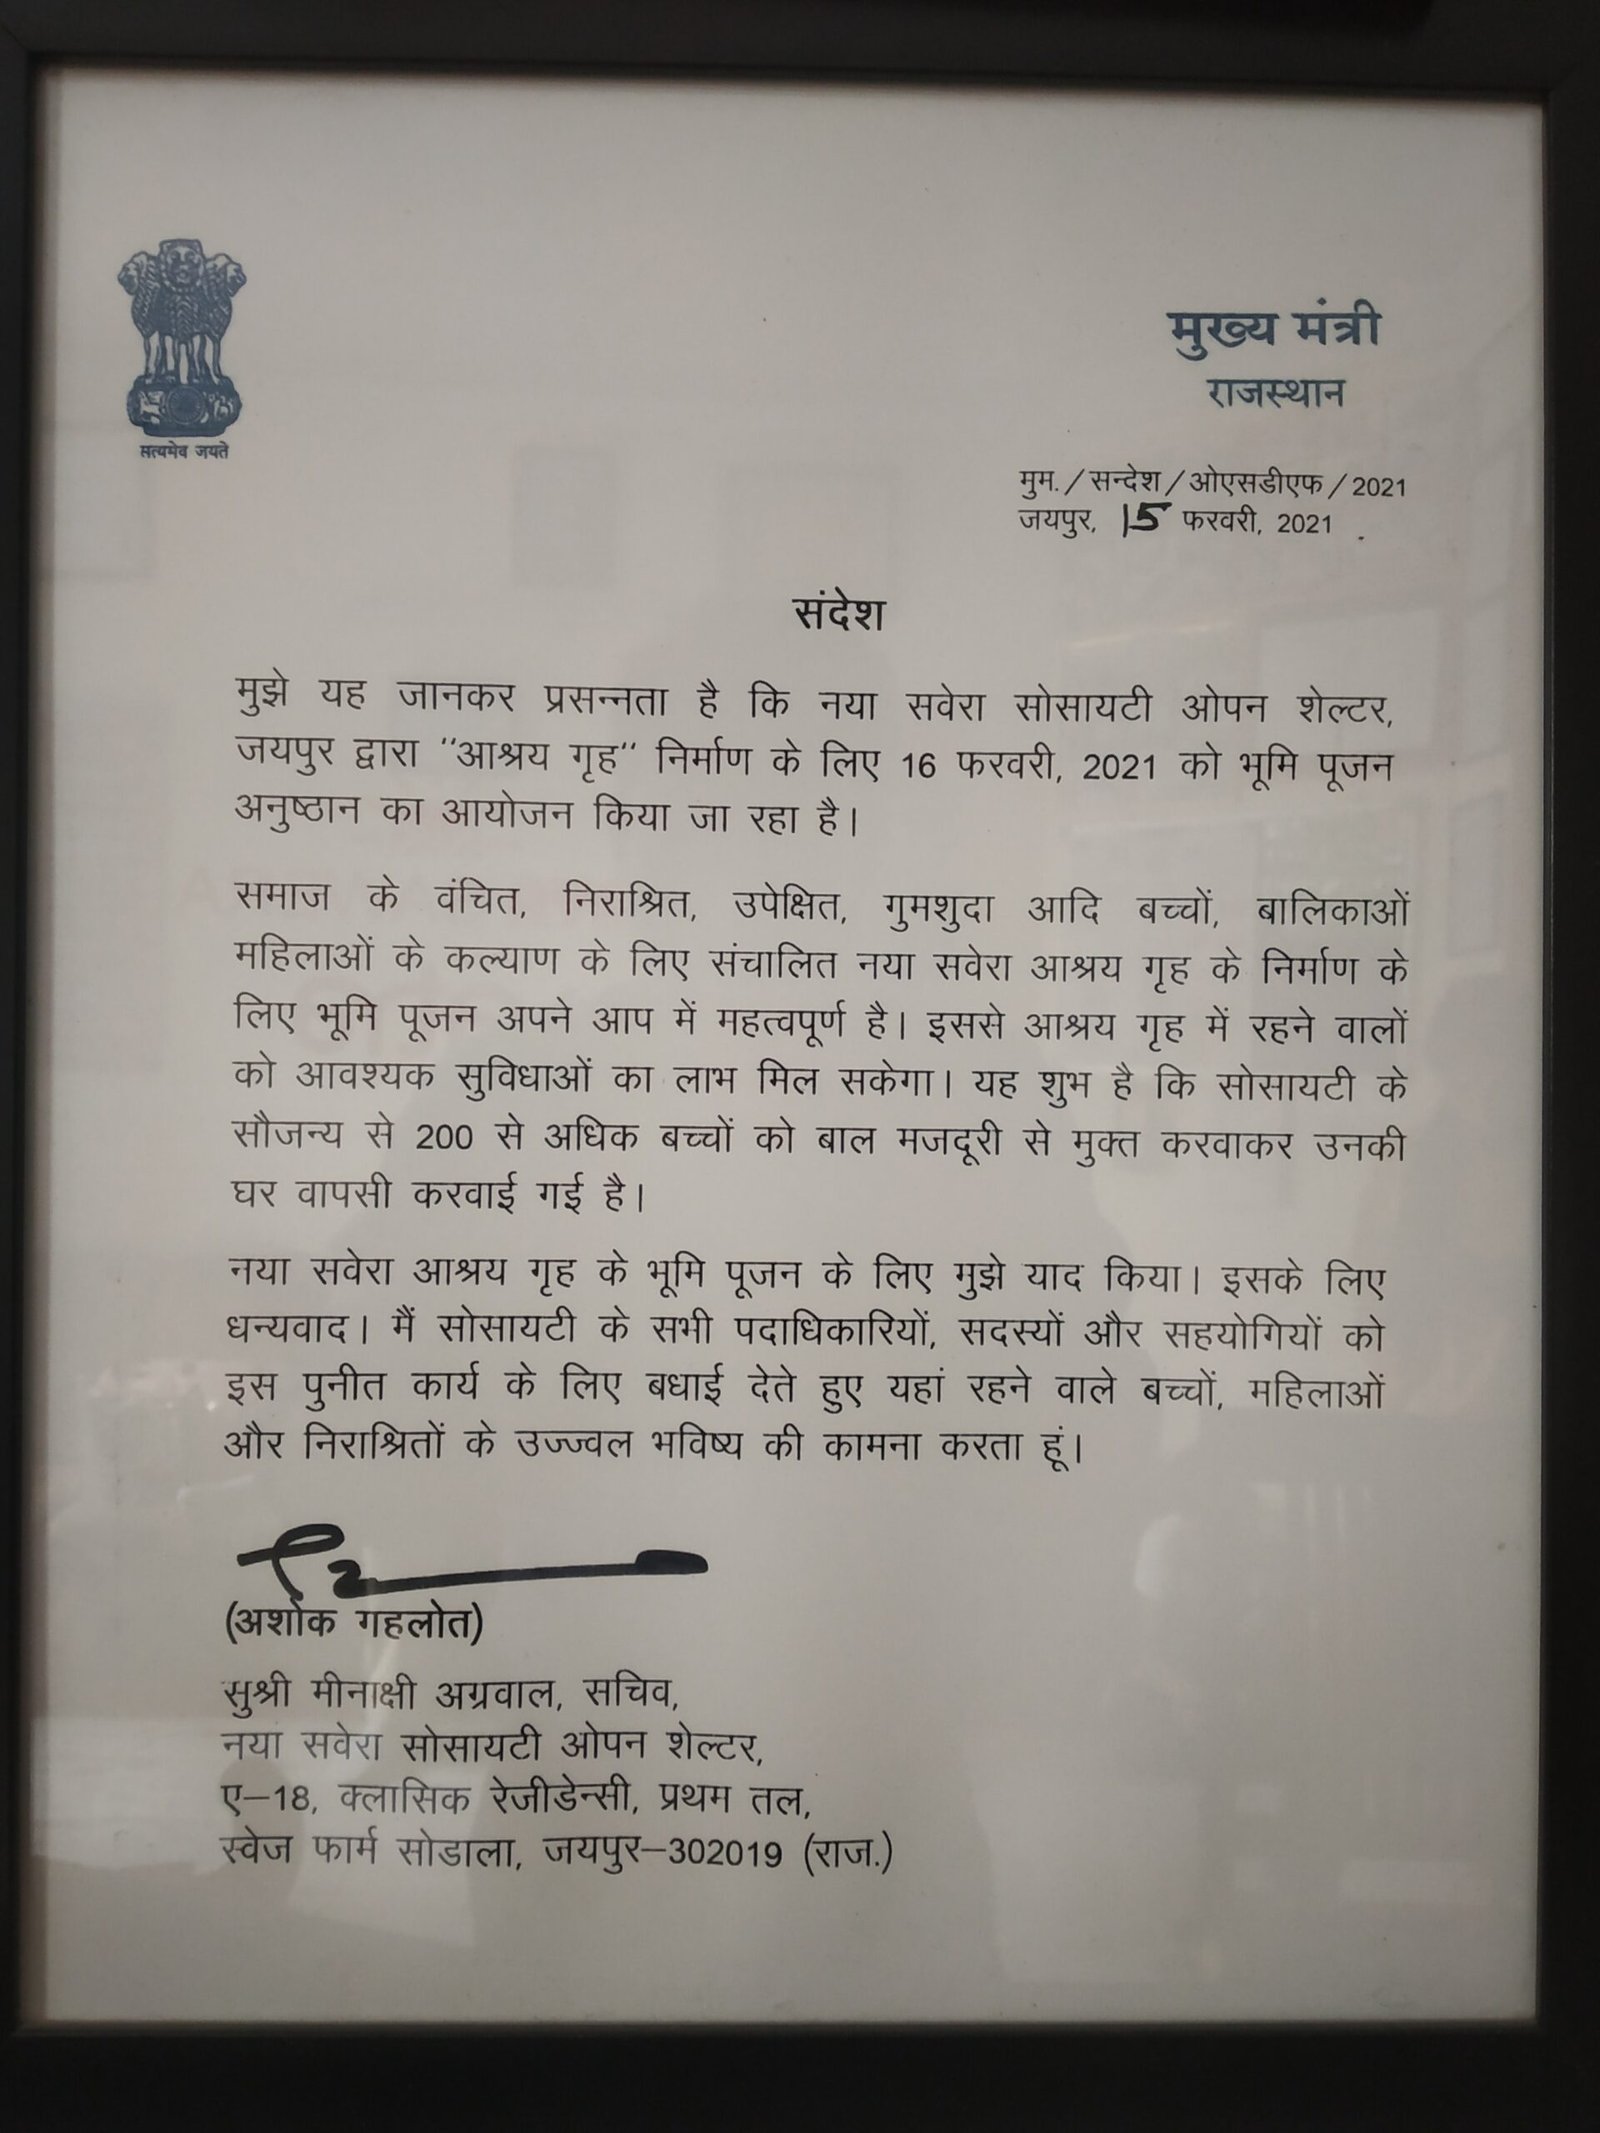 सत्यमेव जयते
मुख्य मंत्री
राजस्थान
मुम./सन्देश/ओएसडीएफ/2021
जयपुर, 15 फरवरी, 2021
संदेश
मुझे यह जानकर प्रसन्नता है कि नया सवेरा सोसायटी ओपन शेल्टर,
जयपुर द्वारा "आश्रय गृह" निर्माण के लिए 16 फरवरी, 2021 को भूमि पूजन
अनुष्ठान का आयोजन किया जा रहा है।
समाज के वंचित, निराश्रित, उपेक्षित, गुमशुदा आदि बच्चों, बालिकाओं
महिलाओं के कल्याण के लिए संचालित नया सवेरा आश्रय गृह के निर्माण के
लिए भूमि पूजन अपने आप में महत्वपूर्ण है। इससे आश्रय गृह में रहने वालों
को आवश्यक सुविधाओं का लाभ मिल सकेगा। यह शुभ है कि सोसायटी के
सौजन्य से 200 से अधिक बच्चों को बाल मजदूरी से मुक्त करवाकर उनकी
घर वापसी करवाई गई है।
नया सवेरा आश्रय गृह के भूमि पूजन के लिए मुझे याद किया। इसके लिए
धन्यवाद। मैं सोसायटी के सभी पदाधिकारियों, सदस्यों और सहयोगियों को
इस पुनीत कार्य के लिए बधाई देते हुए यहां रहने वाले बच्चों, महिलाओं
और निराश्रितों के उज्ज्वल भविष्य की कामना करता हूं।
(अशोक गहलोत)
सुश्री मीनाक्षी अग्रवाल, सचिव,
नया सवेरा सोसायटी ओपन शेल्टर,
ए-18, क्लासिक रेजीडेन्सी, प्रथम तल,
स्वेज फार्म सोडाला, जयपुर-302019 (राज.)